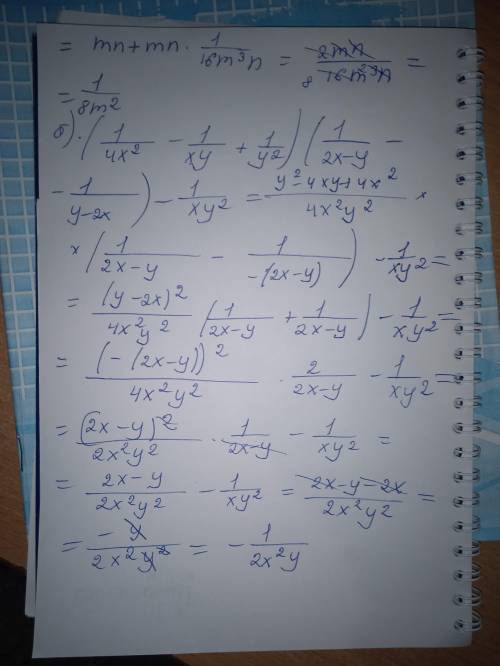 = mn+mn · 1/(16m³n) = 2mn/(16m³n) 8 =
= 1/(8m²)
б). (1/(4x²) − 1/(xy) + 1/y²) (1/(2x−y) −
− 1/(y−2x)) − 1/(xy²) = (y²−4xy+4x²)/(4x²y²) ×
× (1/(2x−y) − 1/(−(2x−y))) − 1/(xy²) =
= (y−2x)²/(4x²y²) (1/(2x−y) + 1/(2x−y)) − 1/(xy²) =
= (−(2x−y))²/(4x²y²) · 2/(2x−y) − 1/(xy²) =
= (2x−y)²/(2x²y²) · 1/(2x−y) − 1/(xy²) =
= (2x−y)/(2x²y²) − 1/(xy²) = (2x−y−2x)/(2x²y²) =
= −y/(2x²y²) = − 1/(2x²y)